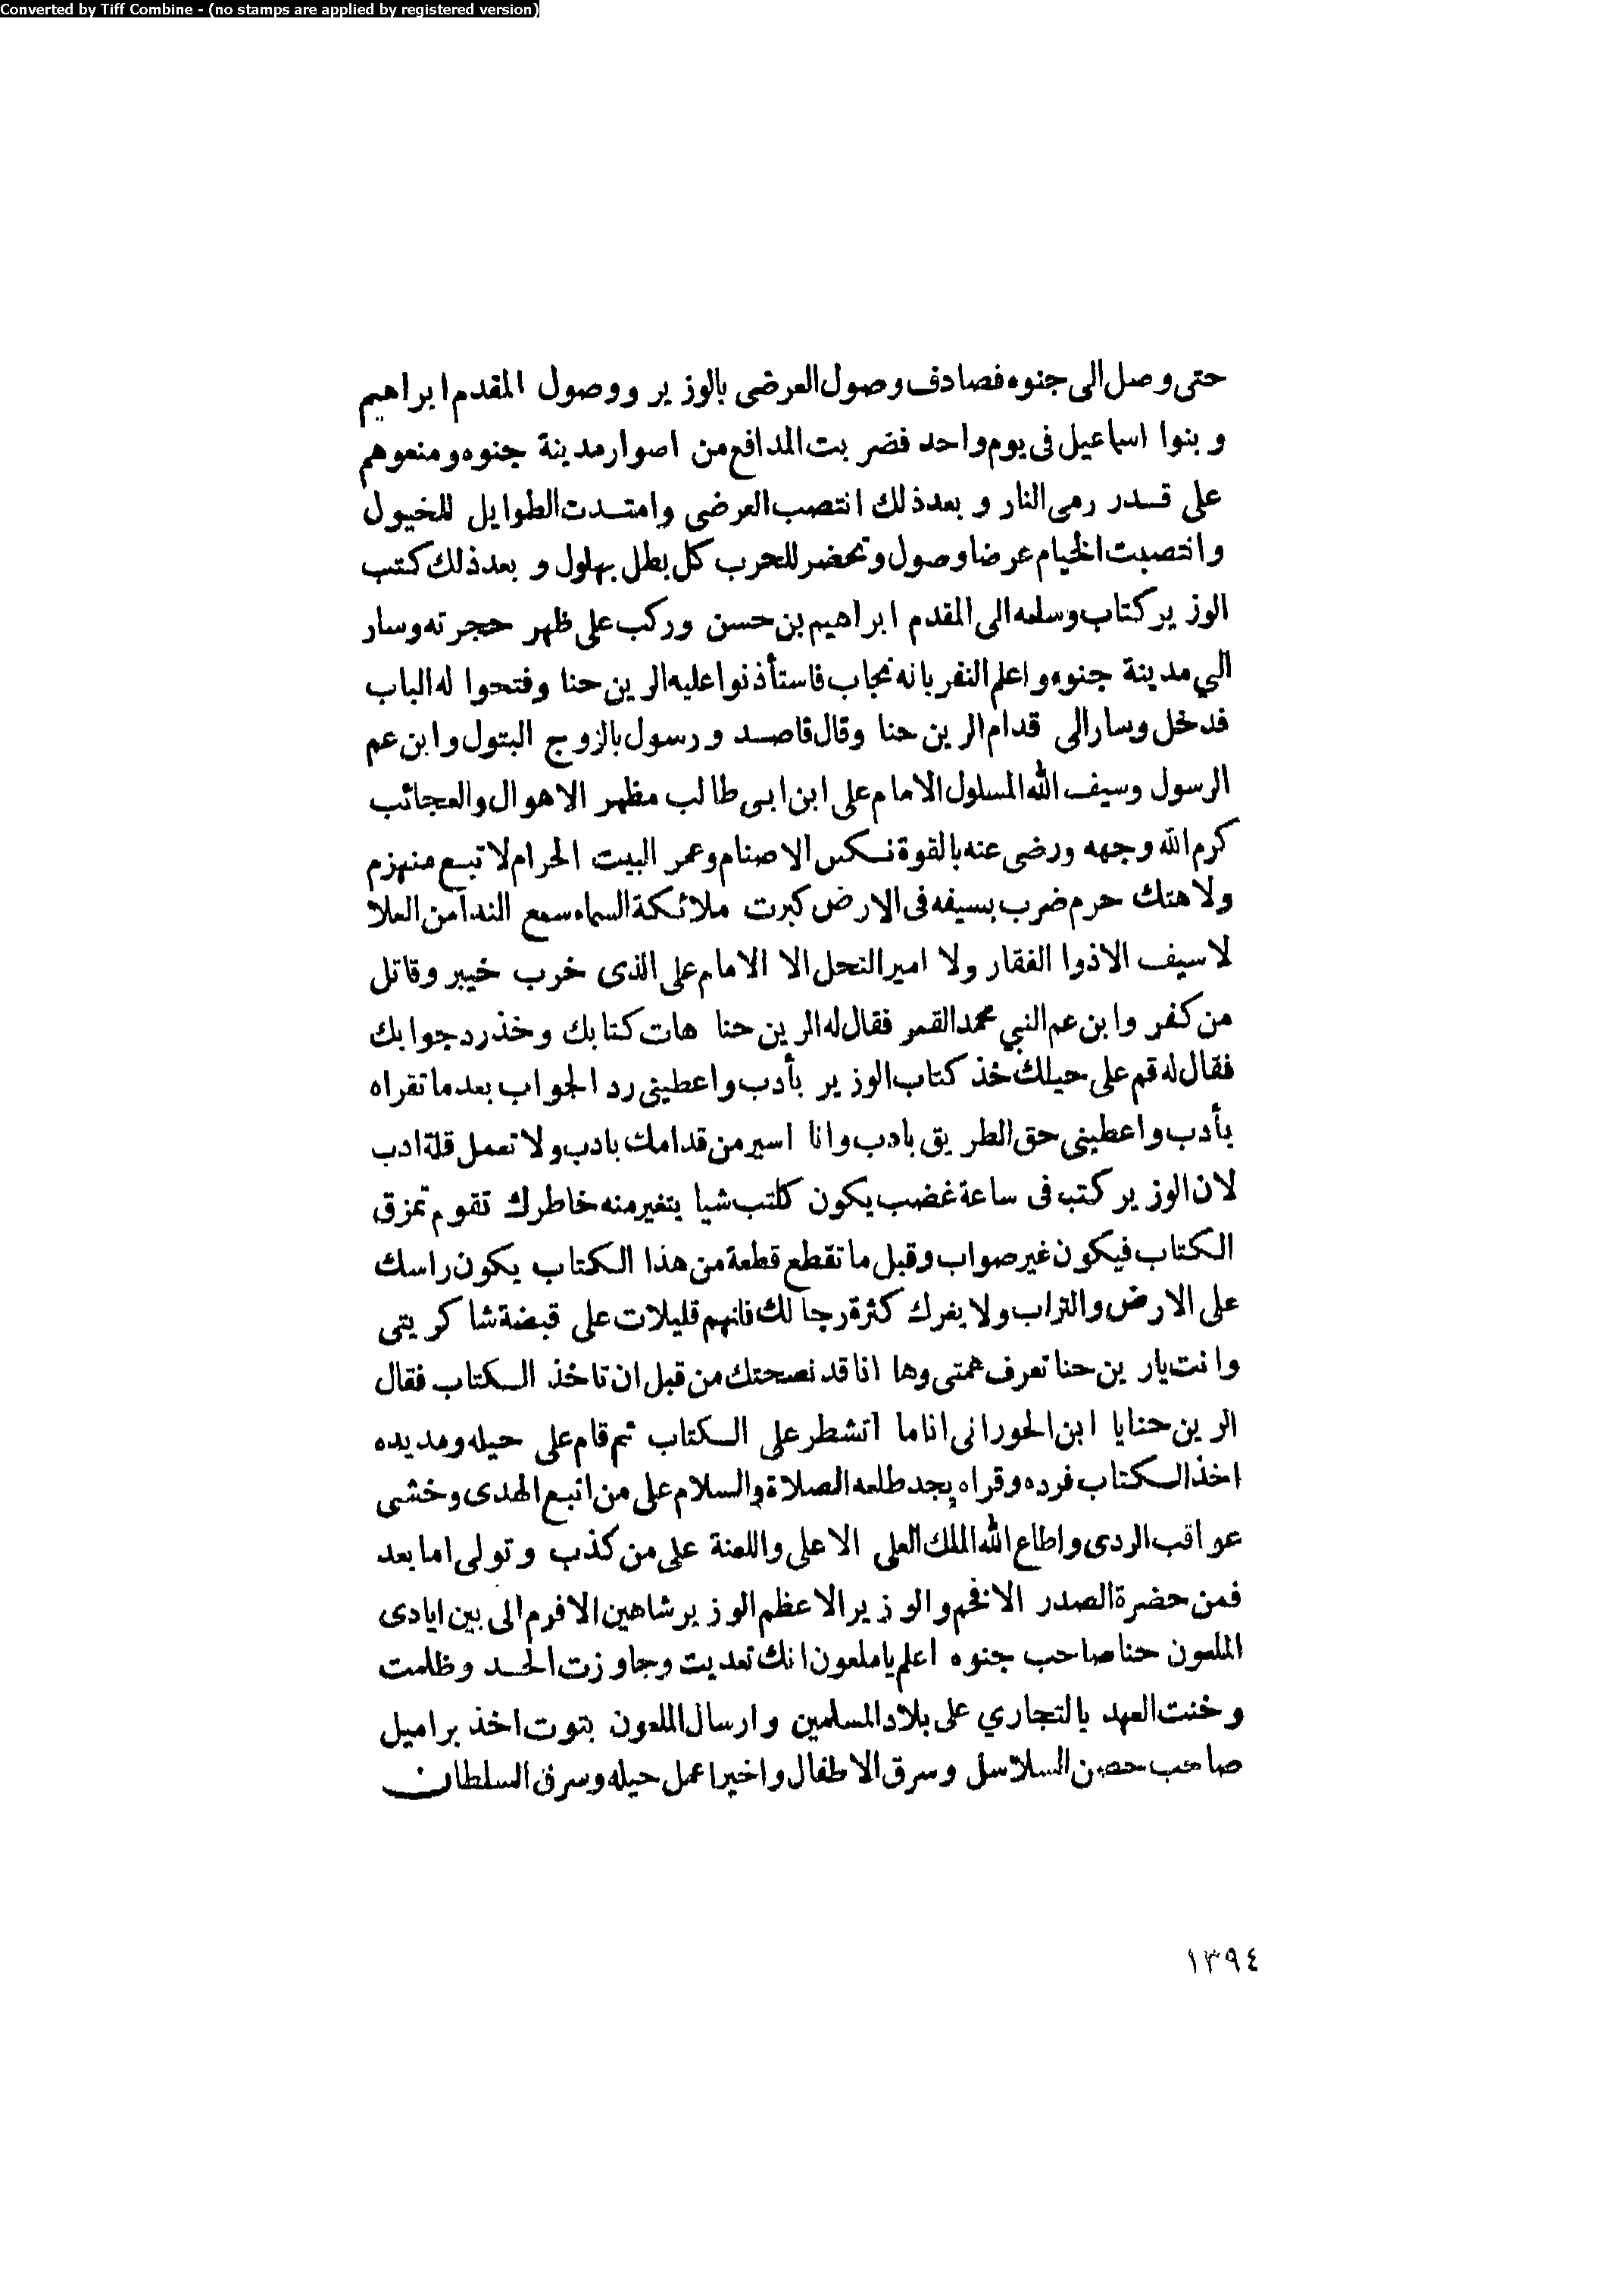 Converted by Tiff Combine - (no stamps are applied by registered version)
حتى وصل الى جنوه فصادف وصول العرضى بالوزير ووصول المقدم ابراهيم
وبنوا اسماعيل فى يوم واحد فضربت المدافع من اصوار مدينة جنوه ومنعوهم
على قدر رمى النار وبعد ذلك انتصب العرضى وامتدت الطوايل للخيول
وانتصبت الخيام عرضا وصول وتحضر للحرب كل بطل بهلول وبعد ذلك كتب
الوزير كتاب وسلمه الى المقدم ابراهيم بن حسن وركب على ظهر حجرته وسار
الي مدينة جنوه واعلم النفر بانه نجاب فاستأذنوا عليه الرين حنا وفتحوا له الباب
فدخل وسار الى قدام الرين حنا وقال قاصد ورسول بالزوج البتول وابن عم
الرسول وسيف الله المسلول الامام على ابن ابى طالب مظهر الاهوال والعجائب
كرم الله وجهه ورضى عنه بالقوة نكس الاصنام وعمر البيت الحرام لا تبع منهزم
ولا هتك حرم ضرب بسيفه فى الارض كبرت ملائكة السماء سمع الندآ من العلا
لا سيف الا ذوا الفقار ولا امير النحل الا الامام على الذى خرب خيبر وقاتل
من كفر وابن عم النبي محمد القمر فقال له الرين حنا هات كتابك وخذ رد جوابك
فقال له قم على حيلك خذ كتاب الوزير بأدب واعطينى رد الجواب بعد ما تقراه
بأدب واعطينى حق الطريق بادب وانا اسير من قدامك بادب ولا تعمل قلة ادب
لان الوزير كتب فى ساعة غضب يكون كلتب شيا يتغير منه خاطرك تقوم تمزق
الكتاب فيكون غير صواب وقبل ما تقطع قطعة من هذا الكتاب يكون راسك
على الارض والتراب ولا يغرك كثرة رجالك فانهم قليلات على قبضة شاكريتى
وانت يارين حنا تعرف همتى وها انا قد نصحتك من قبل ان تاخذ الكتاب فقال
الرين حنا يا ابن الحورانى انا ما آتشطر على الكتاب ثم قام على حيله ومد يده
اخذ الكتاب فرده وقراه يجد طلعه الصلاة والسلام على من اتبع الهدى وخشى
عواقب الردى واطاع الله الملك العلى الاعلى واللعنة على من كذب وتولى اما بعد
فمن حضرة الصدر الافخم والوزير الاعظم الوزير شاهين الافرم الى بين ايادى
الملعون حنا صاحب جنوه اعلم يا ملعون انك تعديت وجاوزت الحد وظلمت
وخنت العهد بالتجاري على بلاد المسلمين وارسال الملعون بتوت اخذ براميل
صاحب حصن السلاسل وسرق الاطفال واخيرا عمل حيله وسرق السلطان
١٣٩٤